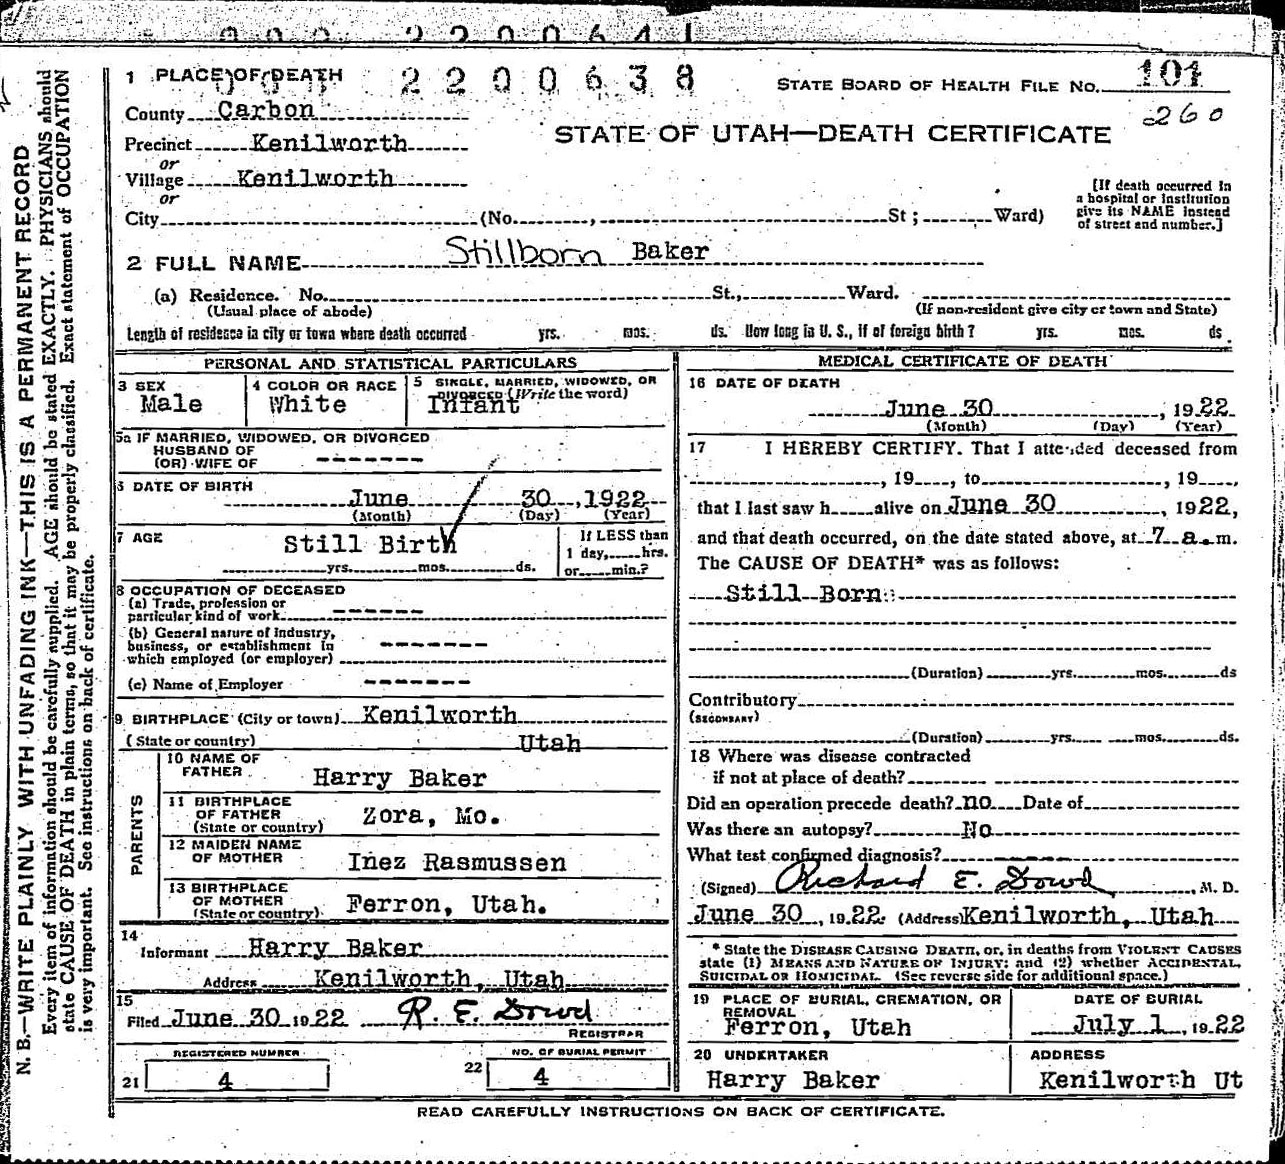 000 2200641
000 2200638
STATE BOARD OF HEALTH FILE NO. 101
260
STATE OF UTAH—DEATH CERTIFICATE
1 PLACE OF DEATH
County Carbon
Precinct Kenilworth
or
Village Kenilworth
or
City (No. , St ; Ward)
[If death occurred in
a hospital or institution
give its NAME instead
of street and number.]
2 FULL NAME Stillborn Baker
(a) Residence. No. St., Ward.
(Usual place of abode) (If non-resident give city or town and State)
Length of residence in city or town where death occurred yrs. mos. ds. How long in U. S., if of foreign birth? yrs. mos. ds
PERSONAL AND STATISTICAL PARTICULARS
3 SEX
Male
4 COLOR OR RACE
White
5 SINGLE, MARRIED, WIDOWED, OR
DIVORCED (Write the word)
Infant
5a IF MARRIED, WIDOWED, OR DIVORCED
HUSBAND OF
(OR) WIFE OF -------
6 DATE OF BIRTH
June 30, 1922
(Month) (Day) (Year)
7 AGE
Still Birth
yrs. mos. ds.
If LESS than
1 day, hrs.
or min.?
8 OCCUPATION OF DECEASED
(a) Trade, profession or
particular kind of work ------
(b) General nature of industry,
business, or establishment in
which employed (or employer) -------
(c) Name of Employer -------
9 BIRTHPLACE (City or town) Kenilworth
(State or country) Utah
PARENTS
10 NAME OF
FATHER Harry Baker
11 BIRTHPLACE
OF FATHER
(State or country) Zora, Mo.
12 MAIDEN NAME
OF MOTHER Inez Rasmussen
13 BIRTHPLACE
OF MOTHER
(State or country) Ferron, Utah.
14
Informant Harry Baker
Address Kenilworth, Utah
15
Filed June 30 1922 R. E. Dowd
REGISTRAR
REGISTERED NUMBER
21 4
NO. OF BURIAL PERMIT
22 4
MEDICAL CERTIFICATE OF DEATH
16 DATE OF DEATH
June 30, 1922
(Month) (Day) (Year)
17 I HEREBY CERTIFY. That I attended deceased from
, 19 , to , 19 ,
that I last saw h alive on June 30, 1922,
and that death occurred, on the date stated above, at 7 a.m.
The CAUSE OF DEATH* was as follows:
Still Born
(Duration) yrs. mos. ds
Contributory
(SECONDARY)
(Duration) yrs. mos. ds.
18 Where was disease contracted
if not at place of death?
Did an operation precede death? no Date of
Was there an autopsy? No
What test confirmed diagnosis? -----
(Signed) Richard E. Dowd, M. D.
June 30, 1922. (Address) Kenilworth, Utah
* State the DISEASE CAUSING DEATH, or, in deaths from VIOLENT CAUSES
state (1) MEANS AND NATURE OF INJURY; and (2) whether ACCIDENTAL,
SUICIDAL OR HOMICIDAL. (See reverse side for additional space.)
19 PLACE OF BURIAL, CREMATION, OR
REMOVAL
Ferron, Utah
DATE OF BURIAL
July 1, 1922
20 UNDERTAKER
Harry Baker
ADDRESS
Kenilworth Ut
READ CAREFULLY INSTRUCTIONS ON BACK OF CERTIFICATE.
N. B.—WRITE PLAINLY WITH UNFADING INK—THIS IS A PERMANENT RECORD
Every item of information should be carefully supplied. AGE should be stated EXACTLY. PHYSICIANS should
state CAUSE OF DEATH in plain terms, so that it may be properly classified. Exact statement of OCCUPATION
is very important. See instructions on back of certificate.